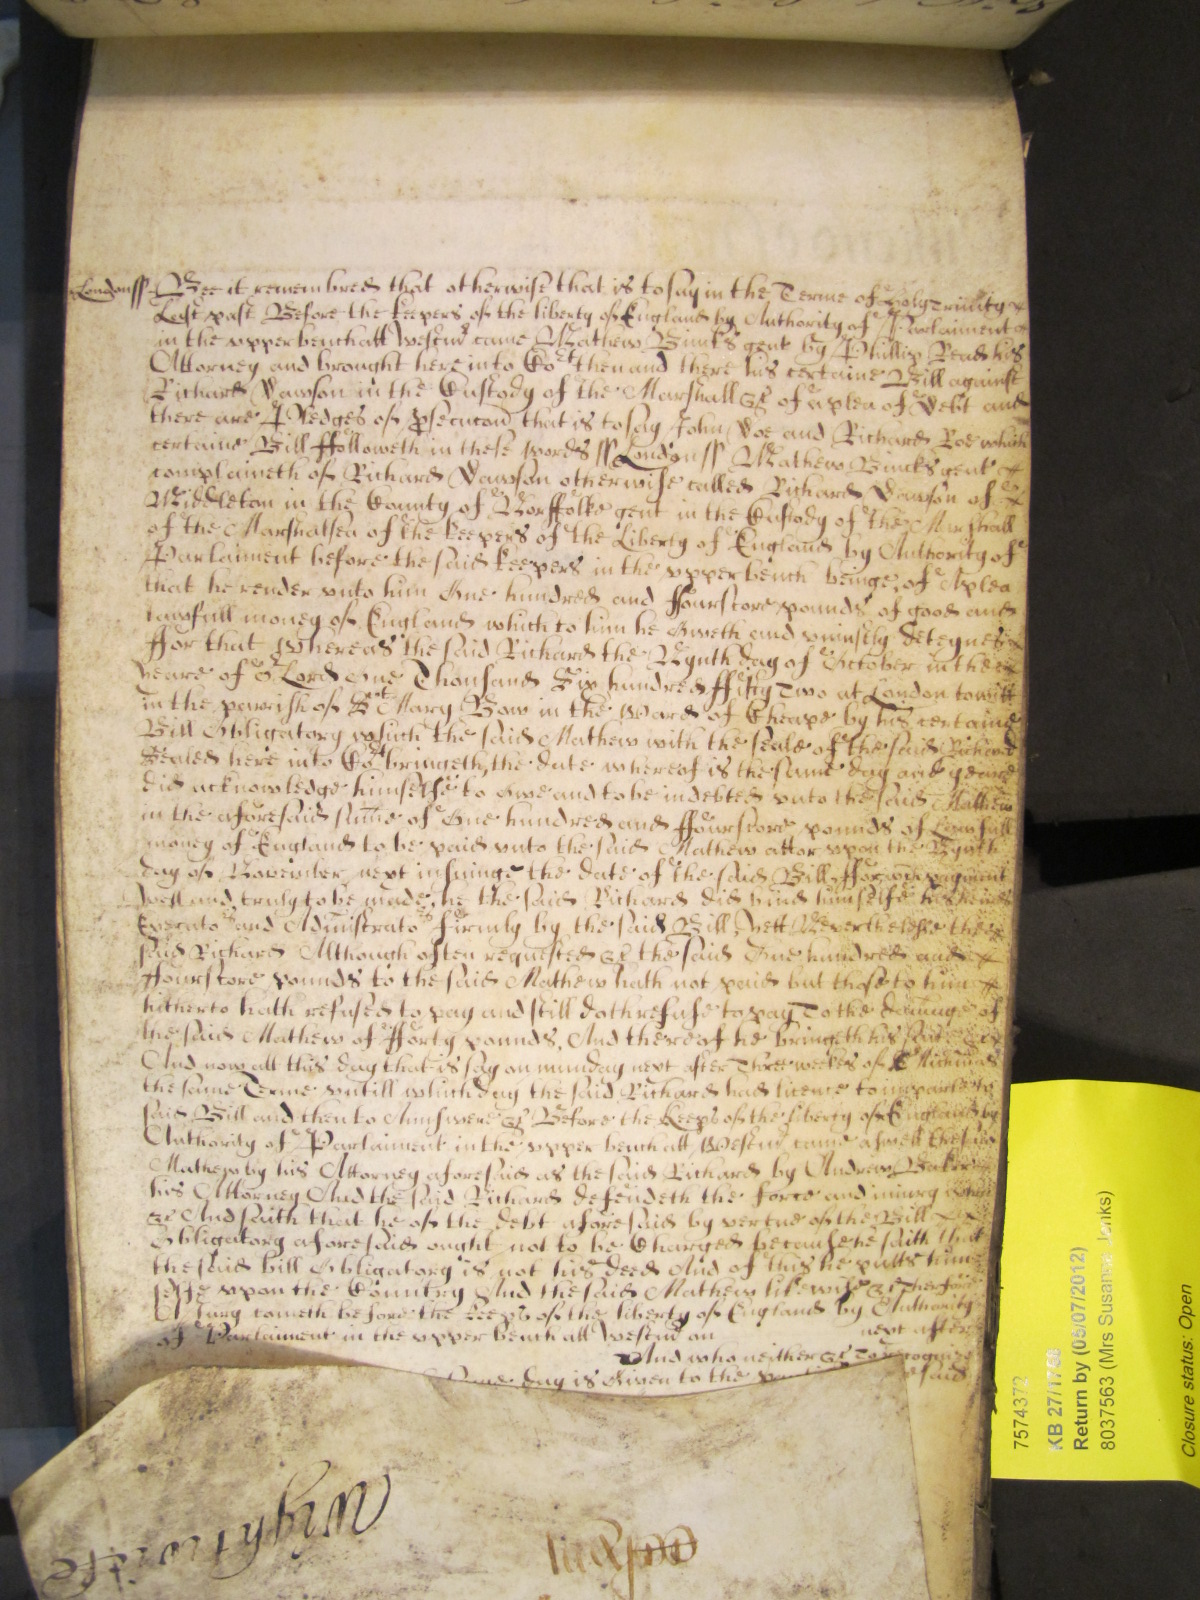 Londonss Bee it remembred that otherwise that is to say in the Terme of holy Trinitity
Last past Before the keepers of the liberty of England by Authority of Parlament
in the vpper bench att Westmr came Mathew Bincks gent by Phillip Read his
Attorney and brought here into Cort then and there his certaine Bill against
Richard Dawson in the Custody of the Marshall &c of a plea of Debt and
there are Pledges of psecucon that is to say John Doe and Richard Roe which
certaine Bill ffolloweth in these words ss Londonss Mathew Bincks gent
complaineth of Richard Dawson otherwise called Richard Dawson of
Middleton in the County of Norffolke gent in the Custody of the Marshall
of the Marshalsea of the keepers of the Liberty of England by Authority of
Parlaiment before the said keepers in the vpper bench beinge of A plea
that he render vnto him One hundred and ffourscore pounds of good and
lawfull money of England which to him he Oweth and vniustly deteyneth
ffor that Whereas the said Richard the Nynth day of October in the
yeare of or Lord One Thousand Six hundred ffifty Two at London to witt
in the parrish of St Mary Bow in the Ward of Cheape by his certaine
Bill Obligatory which the said Mathew with the seale of the said Richard
Sealed here into Cort bringeth, the date whereof is the same day and yeare
did acknowledge himselfe to Owe and to be indebted vnto the said Mathew
in the aforesaid sume of One hundred and ffourscore pounds of Lawfull
money of England to be paid vnto the said Mathew att or vpon the Nynth
day of November next insuinge the date of the said Bill, ffor wch payment
well and truly to be made, he the said Richard did bind himselfe his heires
Executors and Administrators firmly by the said Bill, yett Neverthelesse the
said Richard Although often requested &c the said One hundred and
ffourscore pounds to the said Mathew hath not paid but those to him
hitherto hath refused to pay and still doth refuse to pay To the damage of
the said Mathew of fforty pounds, And thereof he bringeth his suite &c
And now att this day that is say on munday next after Three weekes of St Michaell
the same Terme vntill which day the said Richard had licence to imparle to
said Bill and then to Answere &c Before the keeps of the liberty of England by
Authority of Parlaiment in the vpper bench att Westmr came aswell the said
Mathew by his Attorney aforesaid as the said Richard by Andrew Baker
his Attorney And the said Richard defendeth the force and iniury when
&c And saith that he of the debt aforesaid by vertue of the Bill
Obligatory aforesaid ought not to be Charged because he saith that
the said bill Obligatory is not his deed And of this he putts him
selfe vpon the Country And the said Mathew likewise &c Therfore
Jury cometh before the keeps of the liberty of England by Authority
of Parlaiment in the vpper bench att Westmr on next after
And who neither &c To recognize
same day is Given to the said
Wightwicke
7574372
KB 27/1750
Return by (05/07/2012)
8037563 (Mrs Susanne Jenks)
Closure status: Open